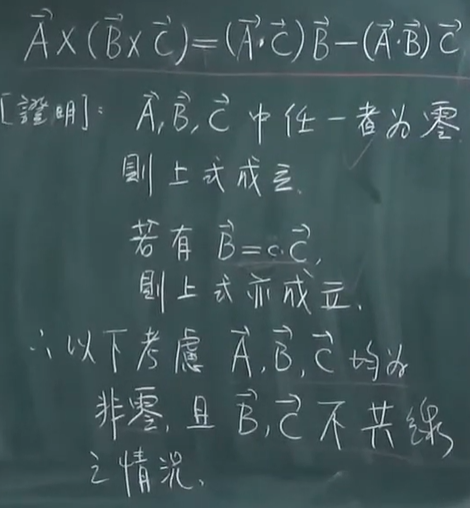 $\vec{A}\times(\vec{B}\times\vec{C})=(\vec{A}\cdot\vec{C})\vec{B}-(\vec{A}\cdot\vec{B})\vec{C}$
[證明]: $\vec{A},\vec{B},\vec{C}$ 中任一者為零
則上式成立.
若有 $\vec{B}=c\cdot\vec{C}$,
則上式亦成立.
∴以下考慮 $\vec{A},\vec{B},\vec{C}$ 均為
非零,且 $\vec{B},\vec{C}$ 不共線
之情況.